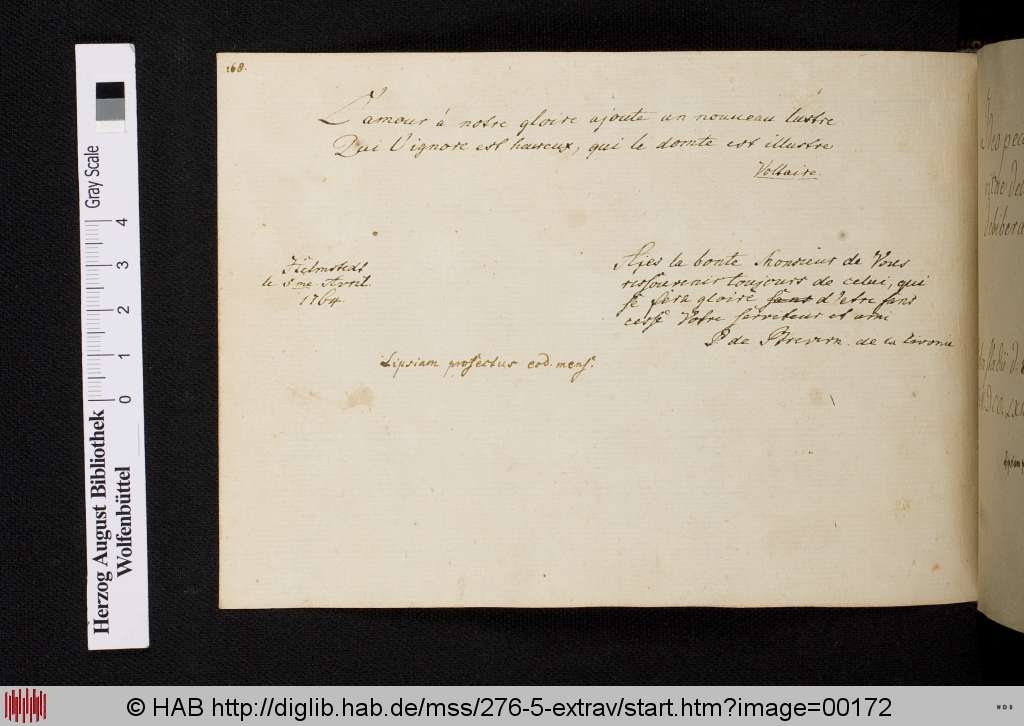 168.
L'amour à notre gloire ajoute un nouveau lustre
Qui l'ignore est heureux, qui le domte est illustre
Voltaire.
Helmstedt
le 5me Avril
1764
Ajes la bonté Monsieur de Vous
ressouvenir toujours de celui, qui
se fera gloire sans d'etre sans
cesse Votre serviteur et ami
P de Brevern. de la Livonie
Lipsiam profectus eod. mens.
Herzog August Bibliothek
Wolfenbüttel
Gray Scale
0 1 2 3 4
© HAB http://diglib.hab.de/mss/276-5-extrav/start.htm?image=00172